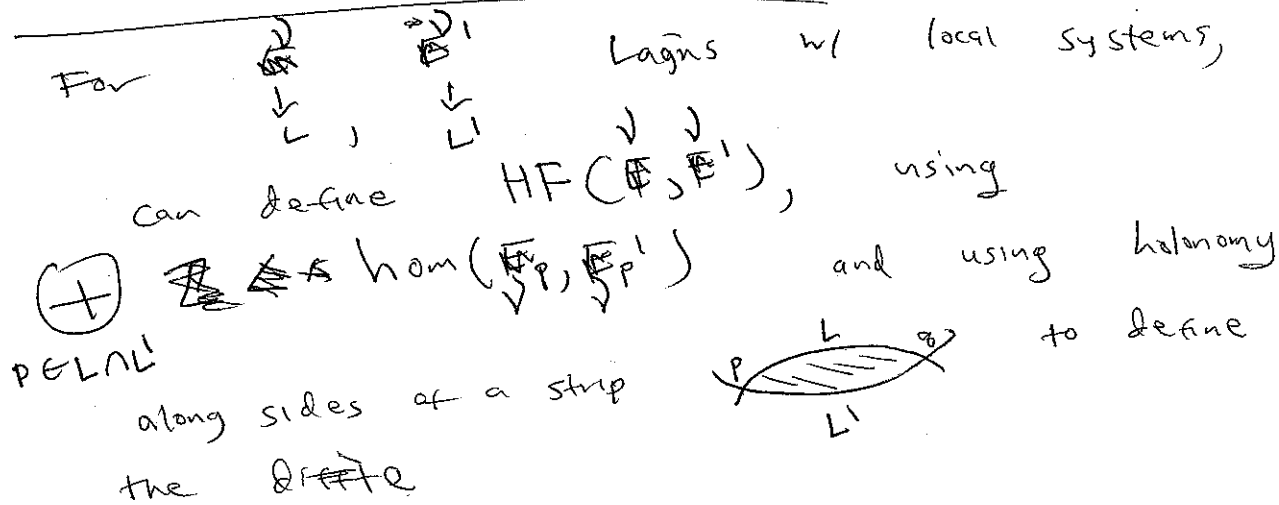 For ↓ L , ↓ L' Lagns w/ local systems,
can define HF(E, E'), using
⊕ p∈L∩L' hom(E_p, E_p') and using holonomy
along sides of a strip p L q L' to define
the diff'le